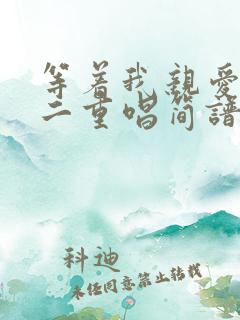 等着我亲爱
二重唱简谱
科迪
未经同意禁止转载